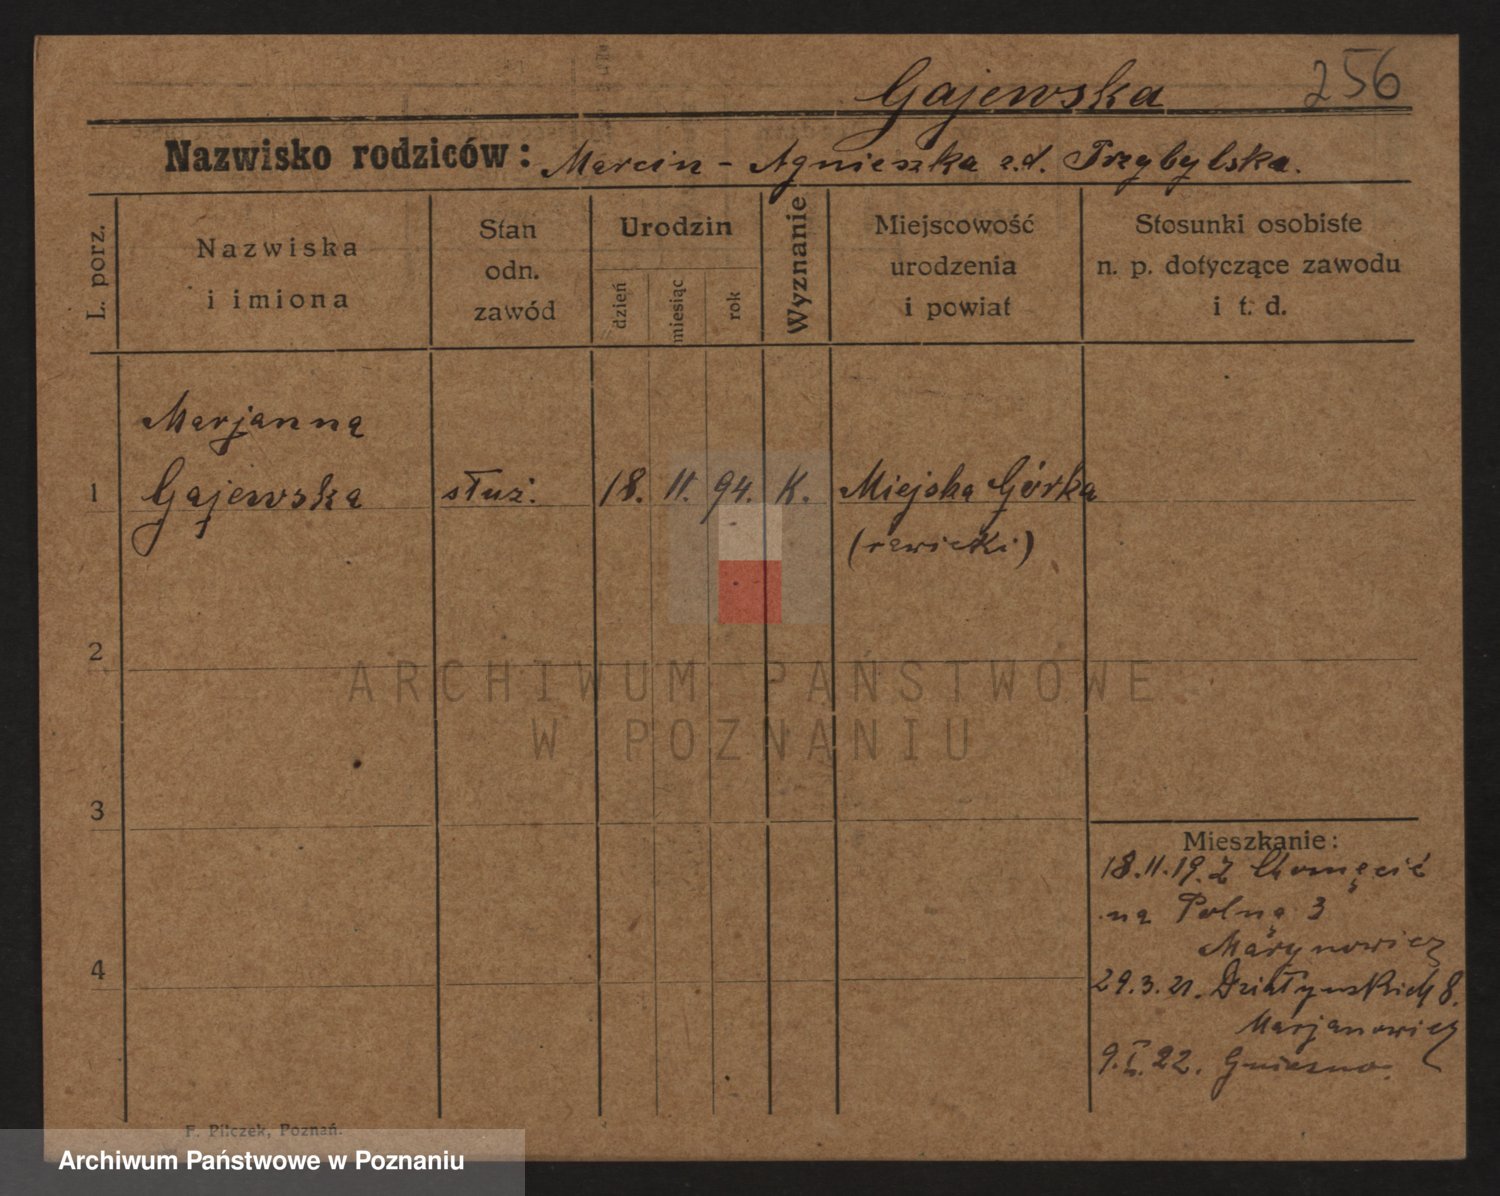 Gajewska 256
Nazwisko rodziców: Marcin - Agnieszka z.d. Przybylska.
L. porz.
Nazwiska
i imiona
Stan
odn.
zawód
Urodzin
dzień
miesiąc
rok
Wyznanie
Miejscowość
urodzenia
i powiat
Stosunki osobiste
n. p. dotyczące zawodu
i t. d.
Marjanna
1 Gajewska służ. 18. 11. 94. K. Miejska Górka
(rawicki)
2
3
4
Mieszkanie:
18.11.19. Z Chomęcic
na Polną 3
29.3.21. Działyńskich 8.
Marjanowicz
9.I.22. Gniezno.
F. Pilczek, Poznań.
ARCHIWUM PAŃSTWOWE
W POZNANIU
Archiwum Państwowe w Poznaniu